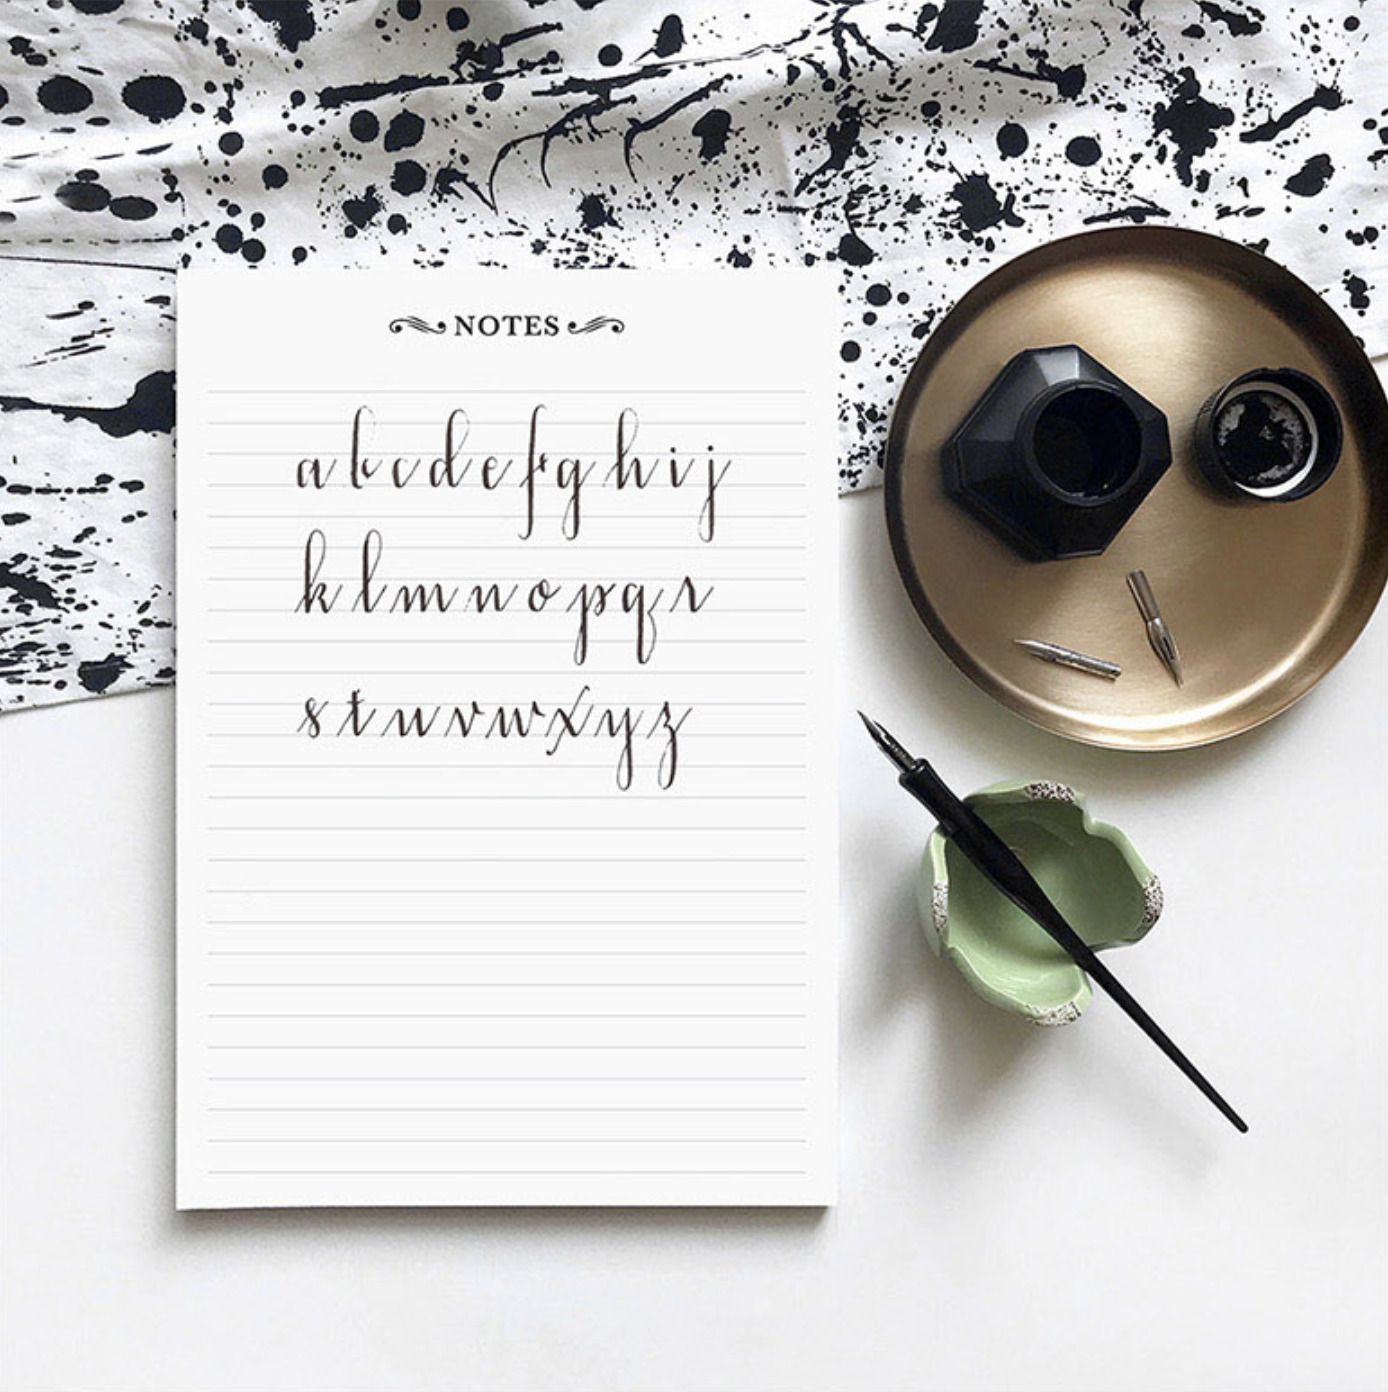 NOTES
a b c d e f g h i j
k l m n o p q r
s t u v w x y z